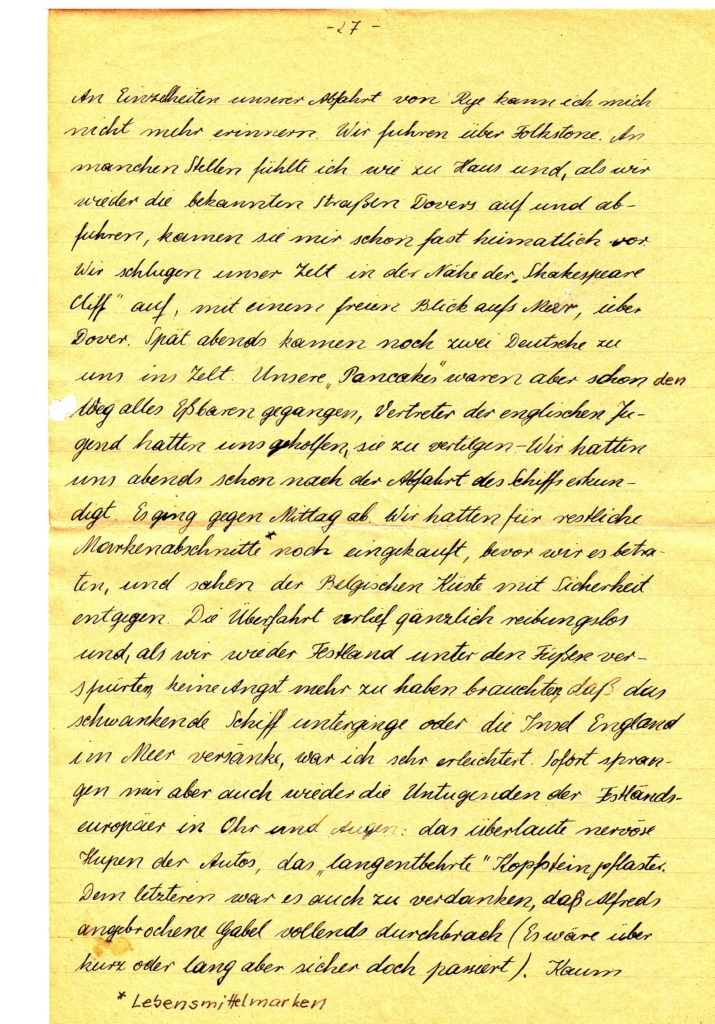 - 27 -
An Einzelheiten unserer Abfahrt von Rye kann ich mich
nicht mehr erinnern. Wir fuhren über Folkstone. An
manchen Stellen fühlte ich wie zu Haus und, als wir
wieder die bekannten Straßen Dovers auf und ab-
fuhren, kamen sie mir schon fast heimatlich vor.
Wir schlugen unser Zelt in der Nähe der „Shakespeare
Cliff" auf, mit einem freien Blick aufs Meer, über
Dover. Spät abends kamen noch zwei Deutsche zu
uns ins Zelt. Unsere „Pancakes" waren aber schon den
Weg alles Eßbaren gegangen, Vertreter der englischen Ju-
gend hatten uns geholfen, sie zu vertilgen – Wir hatten
uns abends schon nach der Abfahrt des Schiffs erkun-
digt. Es ging gegen Mittag ab. Wir hatten für restliche
Markenabschnitte* noch eingekauft, bevor wir es betra-
ten, und sahen der Belgischen Küste mit Sicherheit
entgegen. Die Überfahrt verlief gänzlich reibungslos
und, als wir wieder Festland unter den Füßen ver-
spürten, keine Angst mehr zu haben brauchten, daß das
schwankende Schiff unterginge oder die Insel England
im Meer versänke, war ich sehr erleichtert. Sofort spran-
gen mir aber auch wieder die Untugenden der Festlands-
europäer in Ohr und Augen: das überlaute nervöse
Hupen der Autos, das „langentbehrte" Kopfsteinpflaster.
Dem letzteren war es auch zu verdanken, daß Alfreds
angebrochene Gabel vollends durchbrach (Es wäre über
kurz oder lang aber sicher doch passiert). Kaum
* Lebensmittelmarken